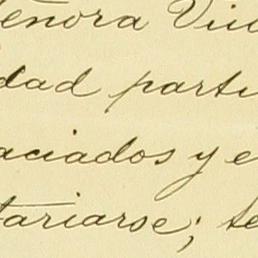 eñora Viu
dad parti
aciados y e
tariarse; te